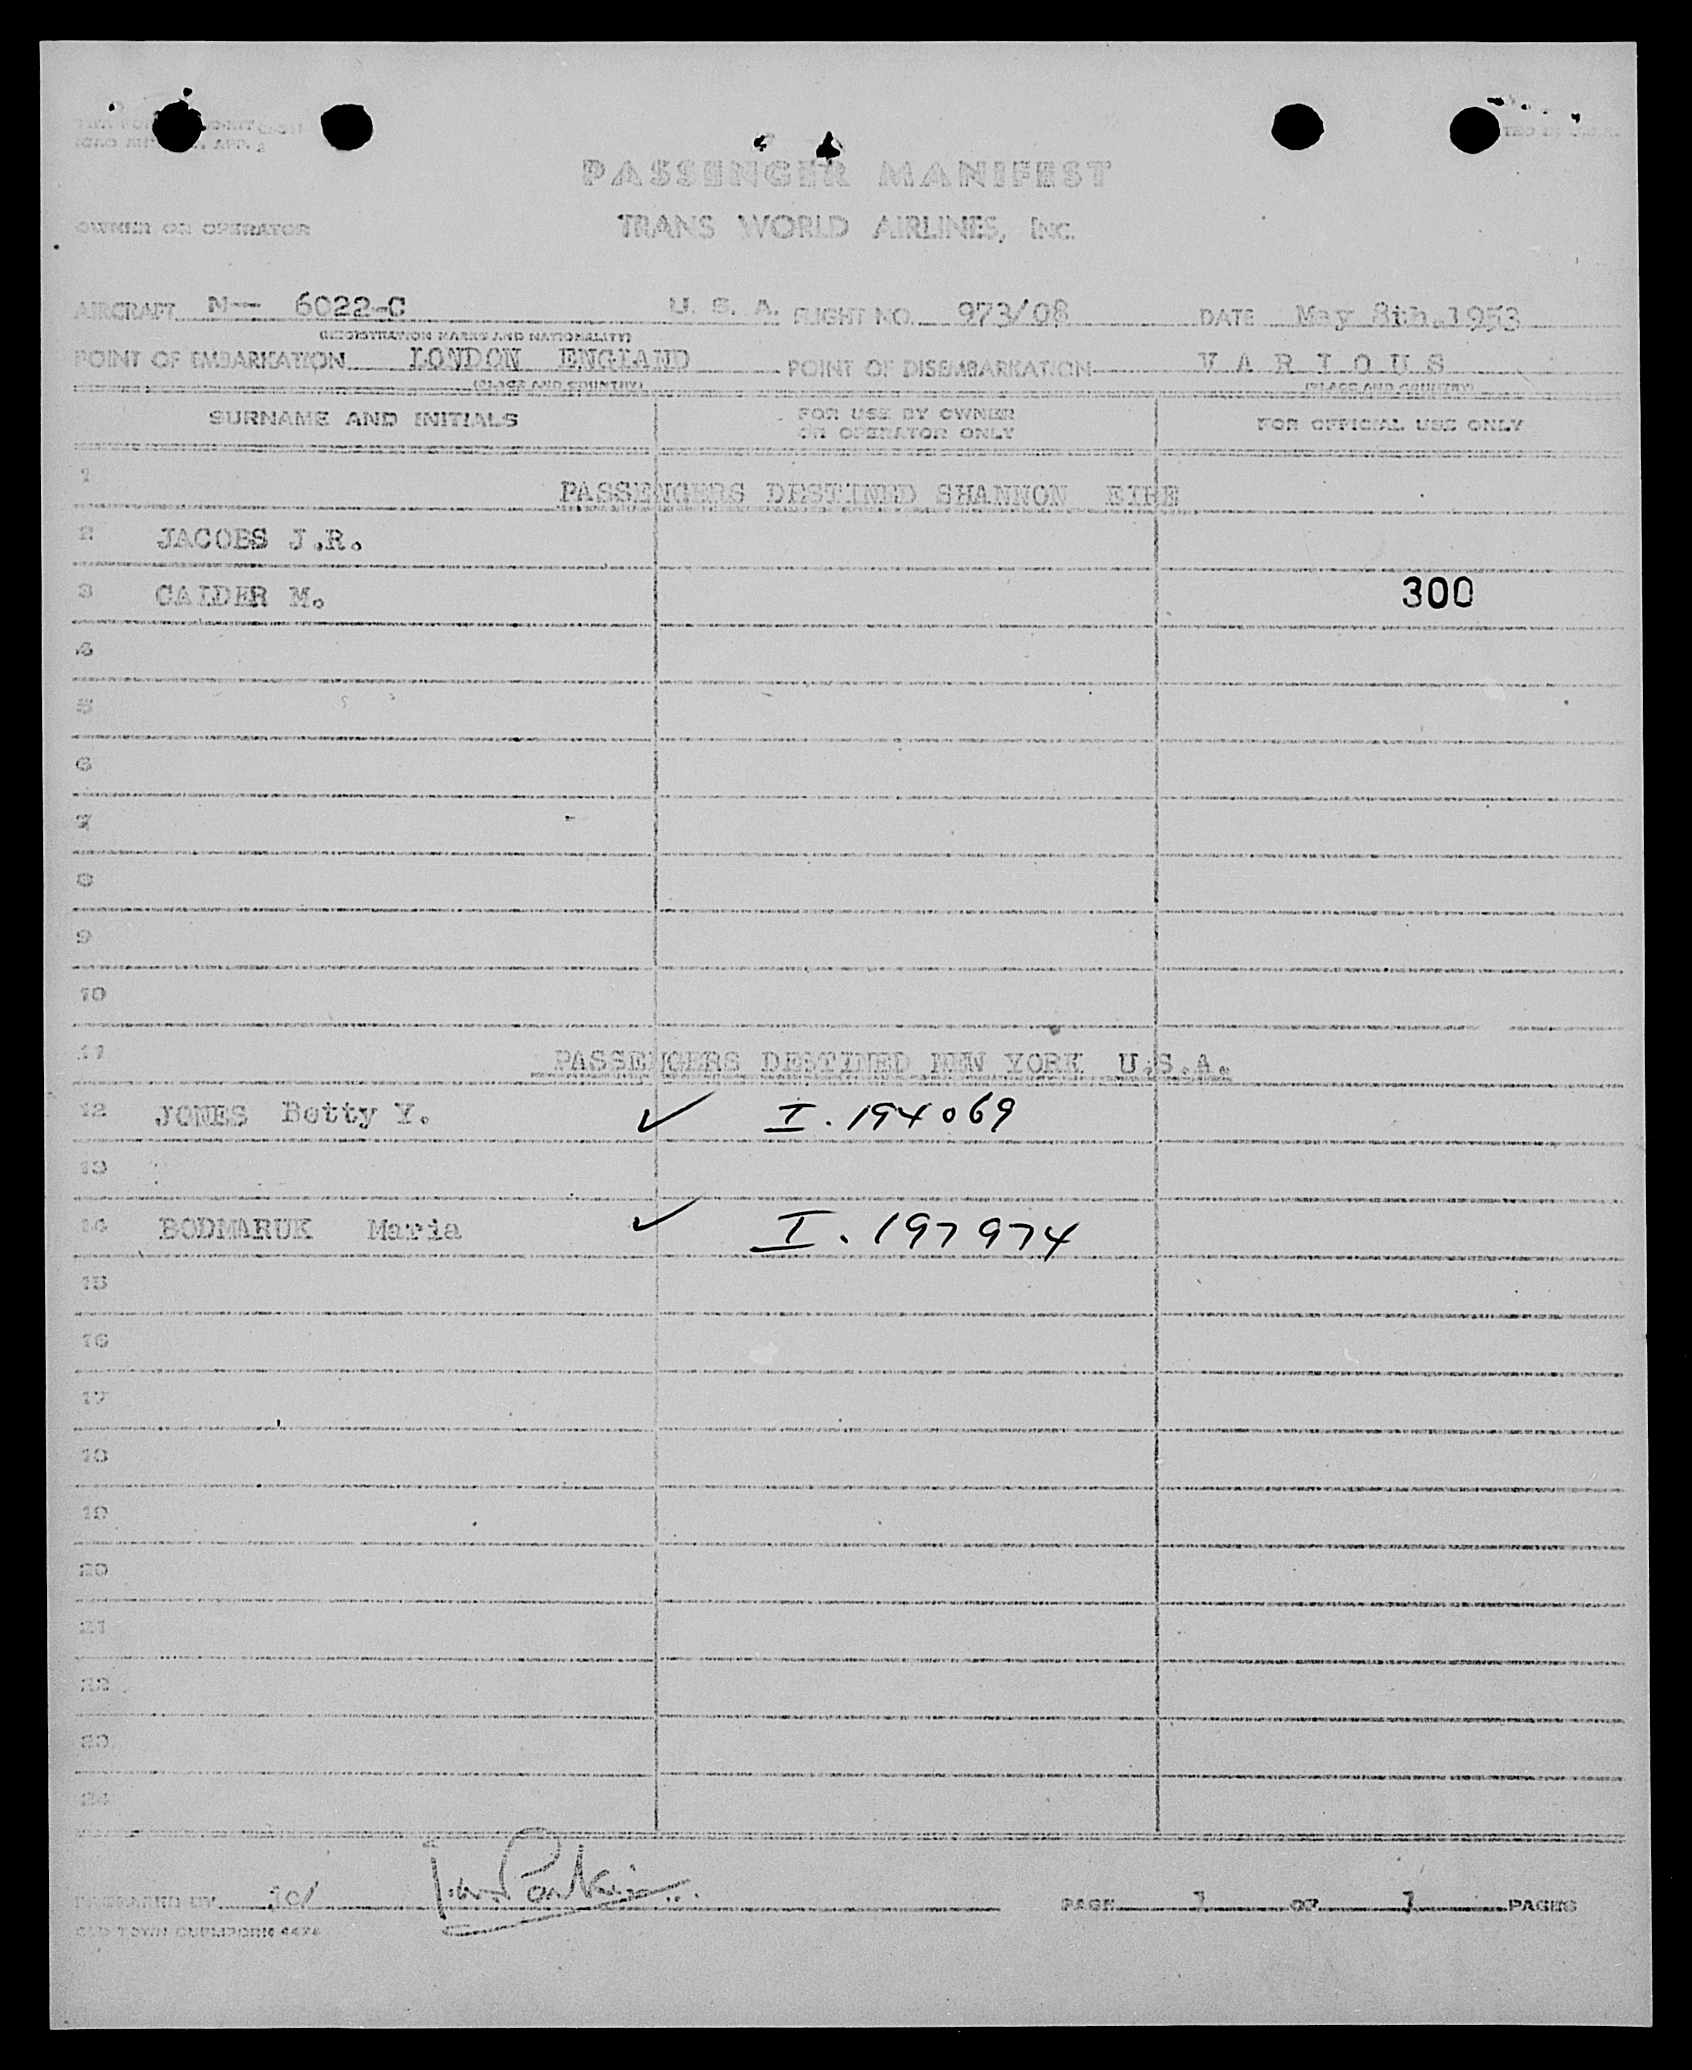 PASSENGER MANIFEST
OWNER OR OPERATOR TRANS WORLD AIRLINES, INC.
AIRCRAFT N— 6022-C U. S. A. FLIGHT NO. 973/08 DATE May 8th. 1953
(REGISTRATION MARKS AND NATIONALITY)
POINT OF EMBARKATION LONDON ENGLAND POINT OF DISEMBARKATION V A R I O U S
(PLACE AND COUNTRY) (PLACE AND COUNTRY)
SURNAME AND INITIALS FOR USE BY OWNER OR OPERATOR ONLY FOR OFFICIAL USE ONLY
1 PASSENGERS DESTINED SHANNON EIRE
2 JACOBS J.R.
3 CALDER M. 300
4
5
6
7
8
9
10
11 PASSENGERS DESTINED NEW YORK U.S.A.
12 JONES Betty Y. ✓ I. 194069
13
14 BODMARUK Maria ✓ I. 197974
15
16
17
18
19
20
21
22
23
24
PREPARED BY PAGE 1 OF 1 PAGES